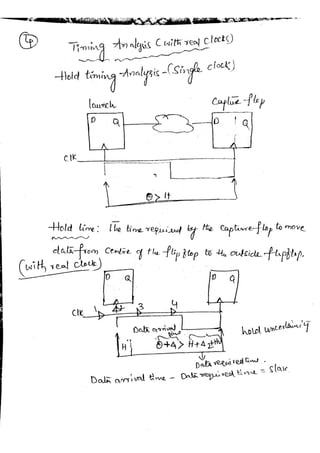 Timing Analysis (with real clocks)
Hold timing - Analysis - (Single clock)
launch
Capture-flop
D Q
D Q
Clk
θ > H
Hold time: The time required by the Capture-flop to move
data from Centre of the flip flop to the outside flipflop.
(with real clock)
D Q
D Q
Clk 1 2 3 4
Data arrival
time
hold uncertainity
H
θ+Δ > H+Δ2
Data required time.
Data arrival time - Data required time = slack